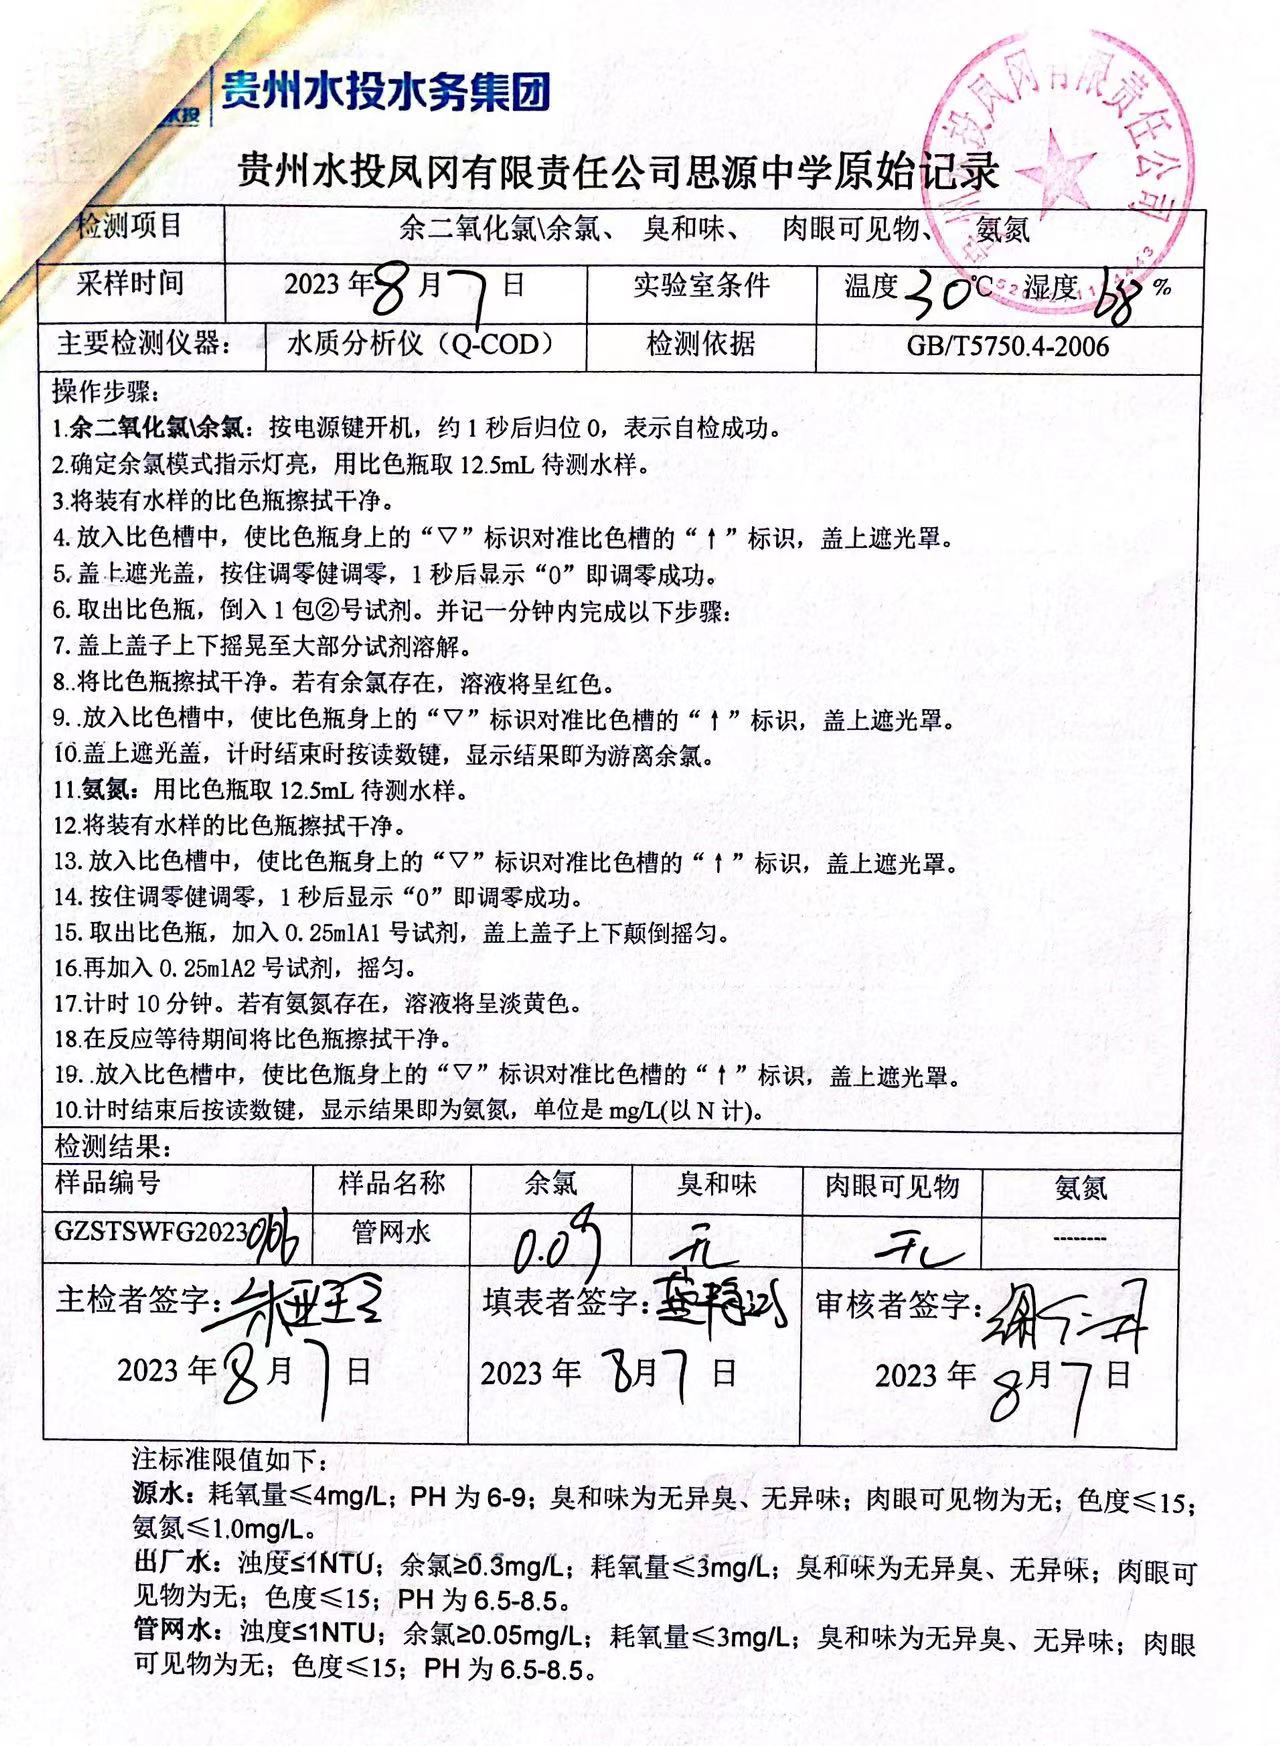 水投
贵州水投水务集团
贵州水投凤冈有限责任公司思源中学原始记录
投凤冈有限责任公司
检测项目 余二氧化氯\余氯、 臭和味、 肉眼可见物、 氨氮
采样时间 2023 年 8 月 7 日 实验室条件 温度 30 ℃ 湿度 68 %
主要检测仪器： 水质分析仪（Q-COD） 检测依据 GB/T5750.4-2006
操作步骤：
1.余二氧化氯\余氯：按电源键开机，约 1 秒后归位 0，表示自检成功。
2.确定余氯模式指示灯亮，用比色瓶取 12.5mL 待测水样。
3.将装有水样的比色瓶擦拭干净。
4. 放入比色槽中，使比色瓶身上的“▽”标识对准比色槽的“↑”标识，盖上遮光罩。
5. 盖上遮光盖，按住调零健调零，1 秒后显示“0”即调零成功。
6. 取出比色瓶，倒入 1 包②号试剂。并记一分钟内完成以下步骤：
7. 盖上盖子上下摇晃至大部分试剂溶解。
8..将比色瓶擦拭干净。若有余氯存在，溶液将呈红色。
9. .放入比色槽中，使比色瓶身上的“▽”标识对准比色槽的“↑”标识，盖上遮光罩。
10.盖上遮光盖，计时结束时按读数键，显示结果即为游离余氯。
11.氨氮：用比色瓶取 12.5mL 待测水样。
12.将装有水样的比色瓶擦拭干净。
13. 放入比色槽中，使比色瓶身上的“▽”标识对准比色槽的“↑”标识，盖上遮光罩。
14. 按住调零健调零，1 秒后显示“0”即调零成功。
15. 取出比色瓶，加入 0.25mlA1 号试剂，盖上盖子上下颠倒摇匀。
16.再加入 0.25mlA2 号试剂，摇匀。
17.计时 10 分钟。若有氨氮存在，溶液将呈淡黄色。
18.在反应等待期间将比色瓶擦拭干净。
19. .放入比色槽中，使比色瓶身上的“▽”标识对准比色槽的“↑”标识，盖上遮光罩。
10.计时结束后按读数键，显示结果即为氨氮，单位是 mg/L(以 N 计)。
检测结果：
样品编号 样品名称 余氯 臭和味 肉眼可见物 氨氮
GZSTSWFG2023 管网水 0.09 无 无 --------
主检者签字： 填表者签字： 审核者签字：
2023 年 8 月 7 日 2023 年 8 月 7 日 2023 年 8 月 7 日
注标准限值如下：
源水：耗氧量≤4mg/L；PH 为 6-9；臭和味为无异臭、无异味；肉眼可见物为无；色度≤15；
氨氮≤1.0mg/L。
出厂水：浊度≤1NTU；余氯≥0.3mg/L；耗氧量≤3mg/L；臭和味为无异臭、无异味；肉眼可
见物为无；色度≤15；PH 为 6.5-8.5。
管网水：浊度≤1NTU；余氯≥0.05mg/L；耗氧量≤3mg/L；臭和味为无异臭、无异味；肉眼
可见物为无；色度≤15；PH 为 6.5-8.5。